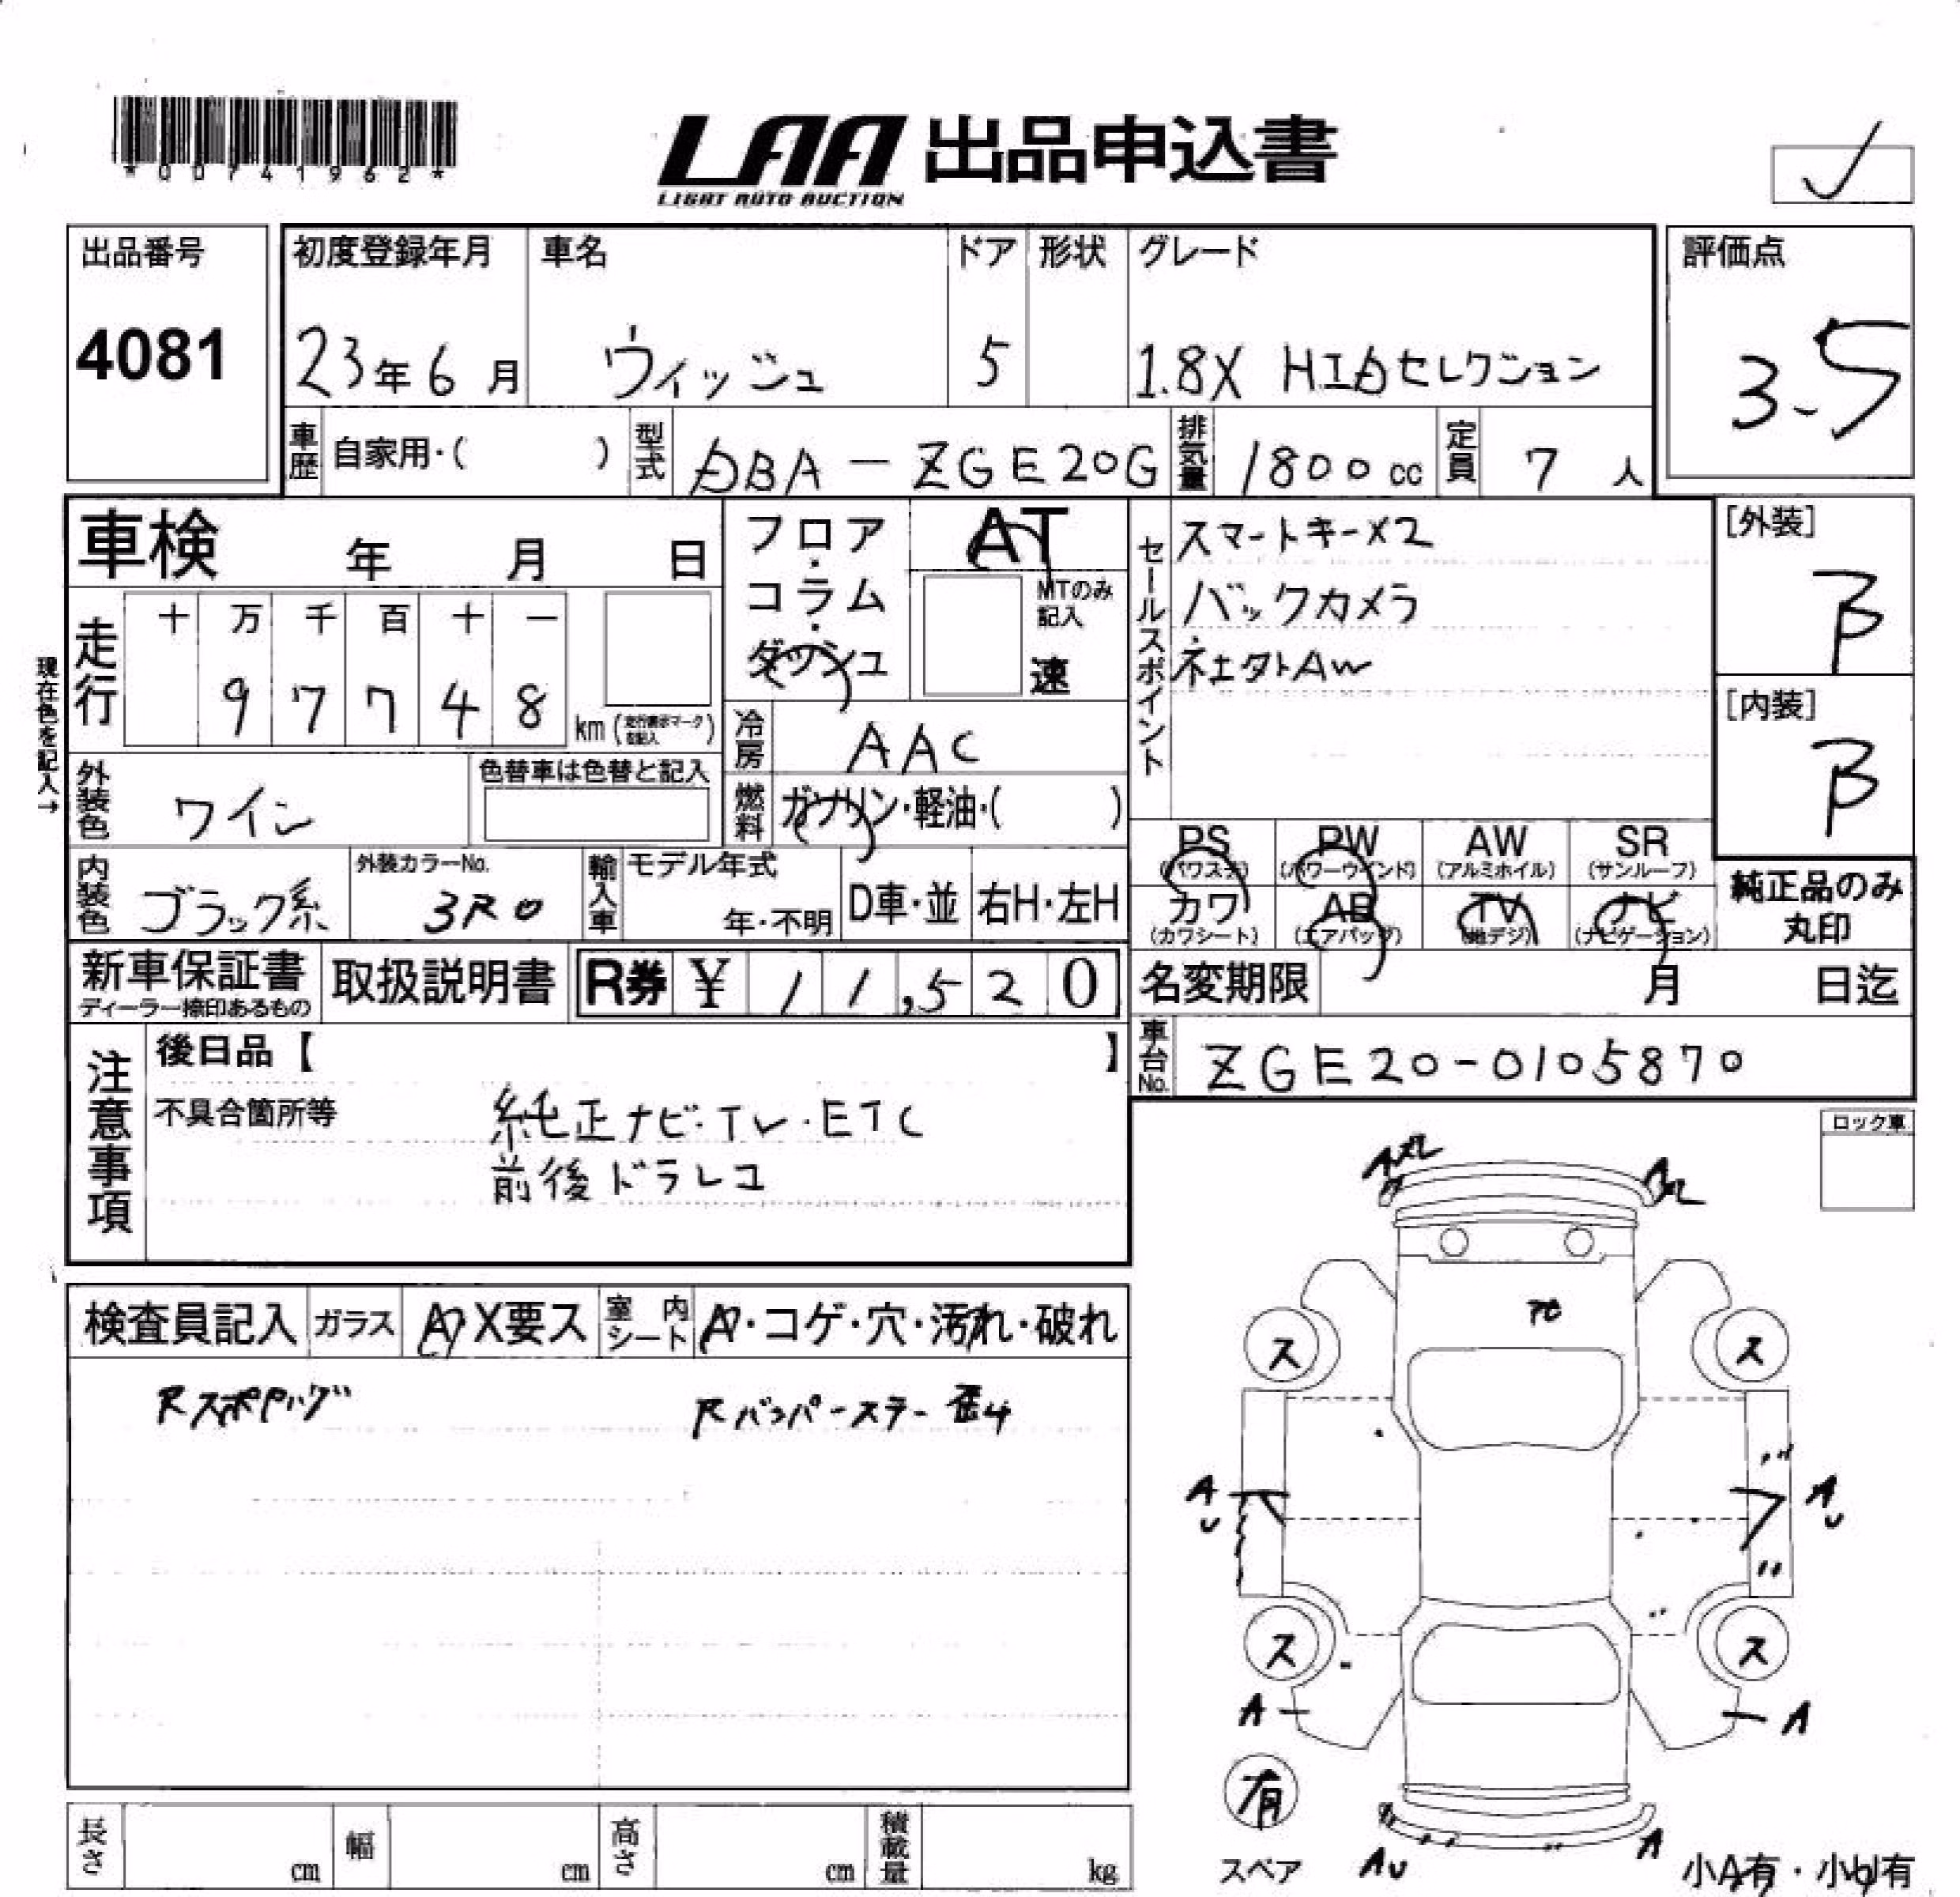 *00741962*
LAA 出品申込書
LIGHT AUTO AUCTION
出品番号
4081
初度登録年月 車名 ドア 形状 グレード
23年6月 ウィッシュ 5 1.8X HIDセレクション
評価点
3.5
車歴 自家用・( ) 型式 DBA-ZGE20G 排気量 1800cc 定員 7人
車検 年 月 日
フロア・コラム・ダッシュ
AT
MTのみ記入
速
セールスポイント
スマートキーX2
バックカメラ
社外AW
[外装]
B
[内装]
B
現在色を記入→
走行 十 万 千 百 十 一
9 7 7 4 8 km (走行表示マークを記入)
冷房 AAC
外装色 ワイン 色替車は色替と記入
燃料 ガソリン・軽油・( )
PS (パワステ) PW (パワーウインド) AW (アルミホイル) SR (サンルーフ)
カワ (カワシート) AB (エアバッグ) TV (地デジ) ナビ (ナビゲーション)
純正品のみ丸印
内装色 ブラック系 外装カラーNo. 3R0 輸入車 モデル年式 年・不明 D車・並 右H・左H
新車保証書 ディーラー捺印あるもの 取扱説明書 R券 ¥ 11,520
名変期限 月 日迄
車台No. ZGE20-0105870
注意事項
後日品【 】
不具合箇所等
純正ナビ・TV・ETC
前後ドラレコ
ロック車
検査員記入 ガラス A X要ス 室内シート A・コゲ・穴・汚れ・破れ
Rバンパーステー歪み
A
A
ス ス
A U
A U
ス ス
A A
有
スペア
AU
A
小A有・小U有
長さ cm 幅 cm 高さ cm 積載量 kg